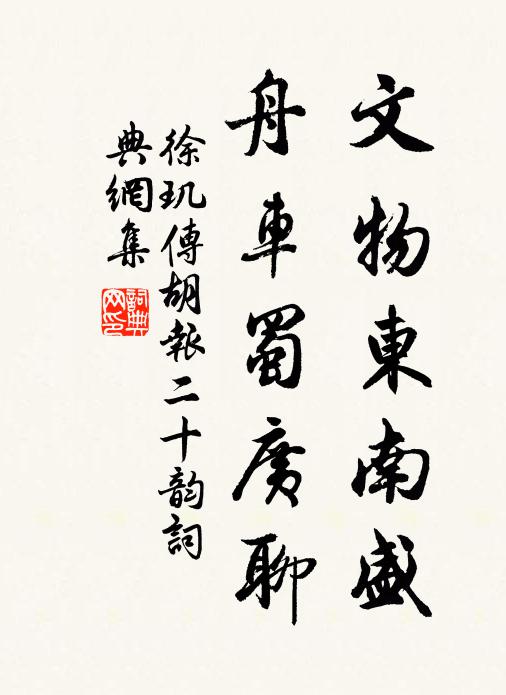 文物東南盛
舟車蜀廣聊
徐玑傳胡報二十韵詞
典網集
詞典
网印